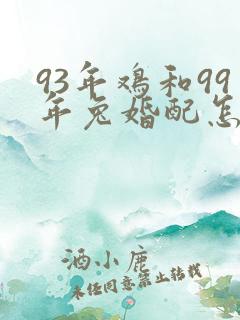 93年鸡和99
年兔婚配怎
酒小鹿
未经同意禁止转载